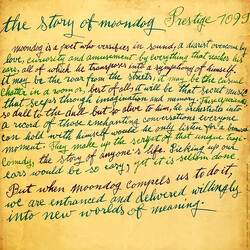 the story of moondog Prestige 7099
moondog is a poet who versifies in sound, a diarist overcome by
love, curiosity and amusement by everything that reaches his
ears, all of which he transposes into a symphony of himself.
it may be the roar from the streets; it may be the casual
chatter in a room or, best of all, it will be that secret music
that seeps through imagination and memory. They agonizing
so dull to the call but so alive to him, he orchestrates into
a record of those enchanting conversations everyone
can hold with himself would he only listen for a
moment. They make up the script of that unique
comedy, the story of anyone's life. Picking up our
ears would be so easy; yet it is seldom done.
But when moondog compels us to do it,
we are entranced and delivered willingly
into new worlds of meaning.